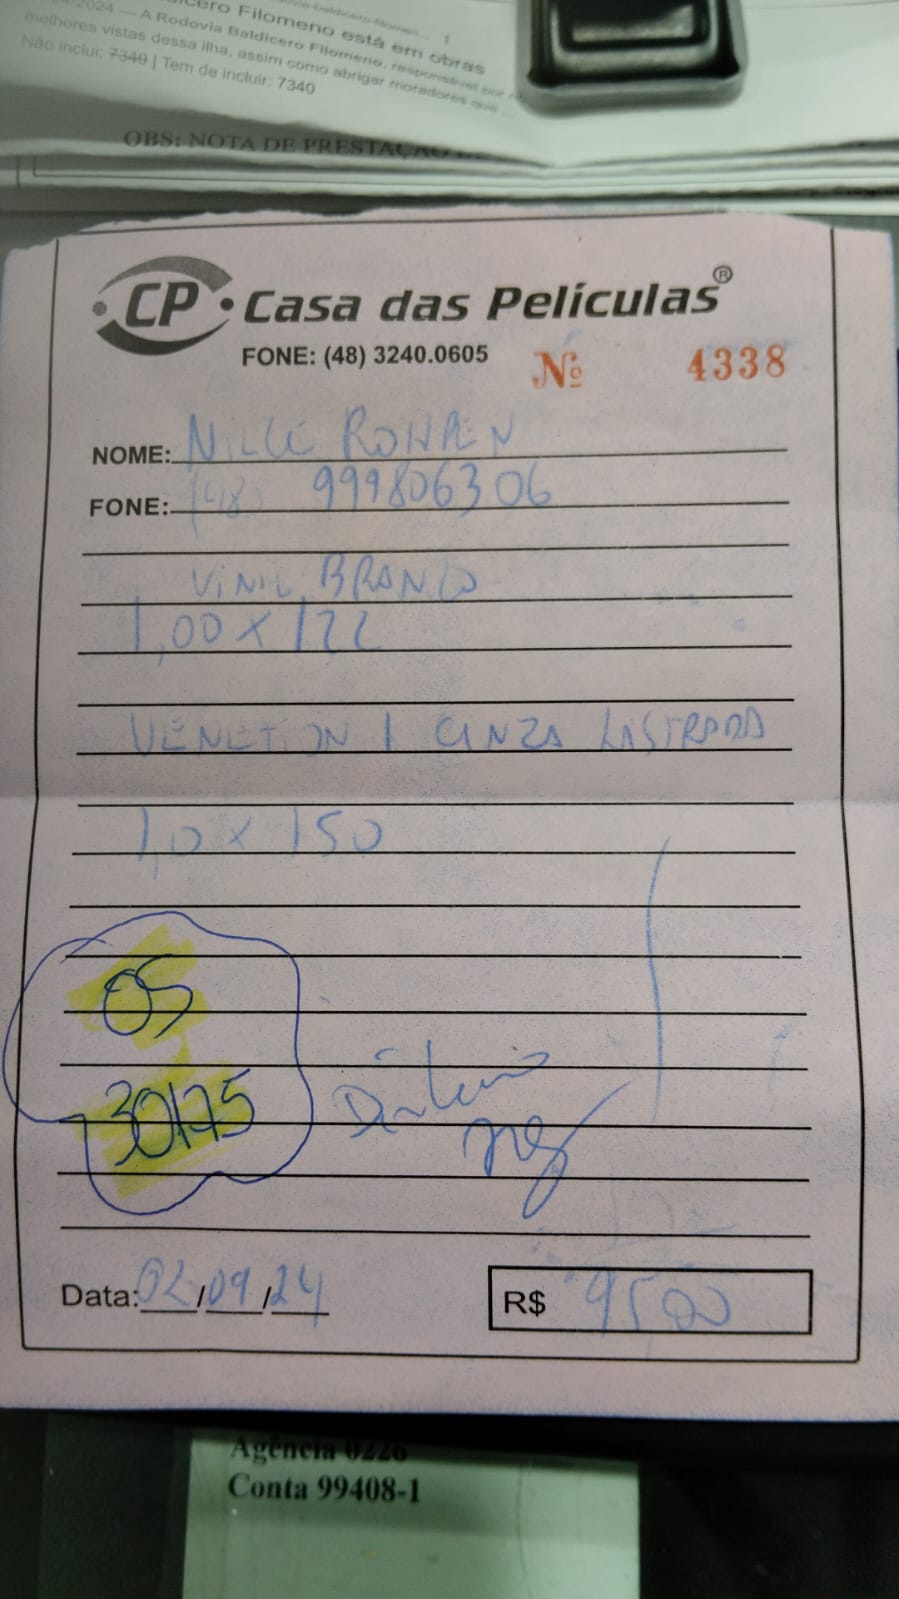 Filomeno está em obras
2024 — A Rodovia Baldicero Filomeno, responsável por
melhores vistas dessa ilha, assim como abrigar moradores que
Não inclui: 7340 | Tem de incluir: 7340
OBS: NOTA DE PRESTAÇÃO
CP Casa das Películas®
FONE: (48) 3240.0605 Nº 4338
NOME:
FONE: (48) 999806306
VINIL BRANCO
1,00 x 122
1 CINZA
1,0 x 150
OS
30175
Dinheiro
Data: 02/09/24 R$ 9500
Agência 0226
Conta 99408-1